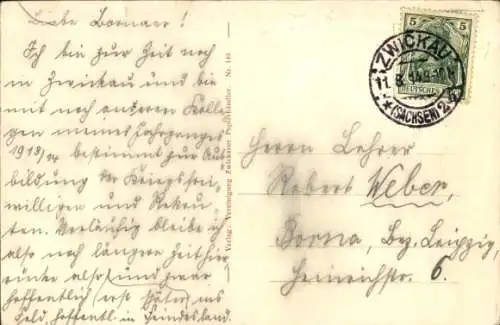 Liebe Bornaer!
Ich bin zur Zeit noch
in Zwickau und bin
mit noch anderen Kolle-
gen meines Jahrganges
1913/14 bestimmt zur Aus-
bildung der Kriegsfrei-
willigen und Rekru-
ten. Vorläufig bleibe ich
also noch längere Zeit hier
also und zwar
hoffentlich (erst später) ins
Feld, hoffentl. in Feindesland.
Verlag: Vereinigung Zwickauer Nr. 144
5 5
DEUTSCHES
ZWICKAU
11.8.14.9-10V
*(SACHSEN)2
Herrn Lehrer
Robert Weber,
Borna, Bez. Leipzig,
Heinrichstr. 6.